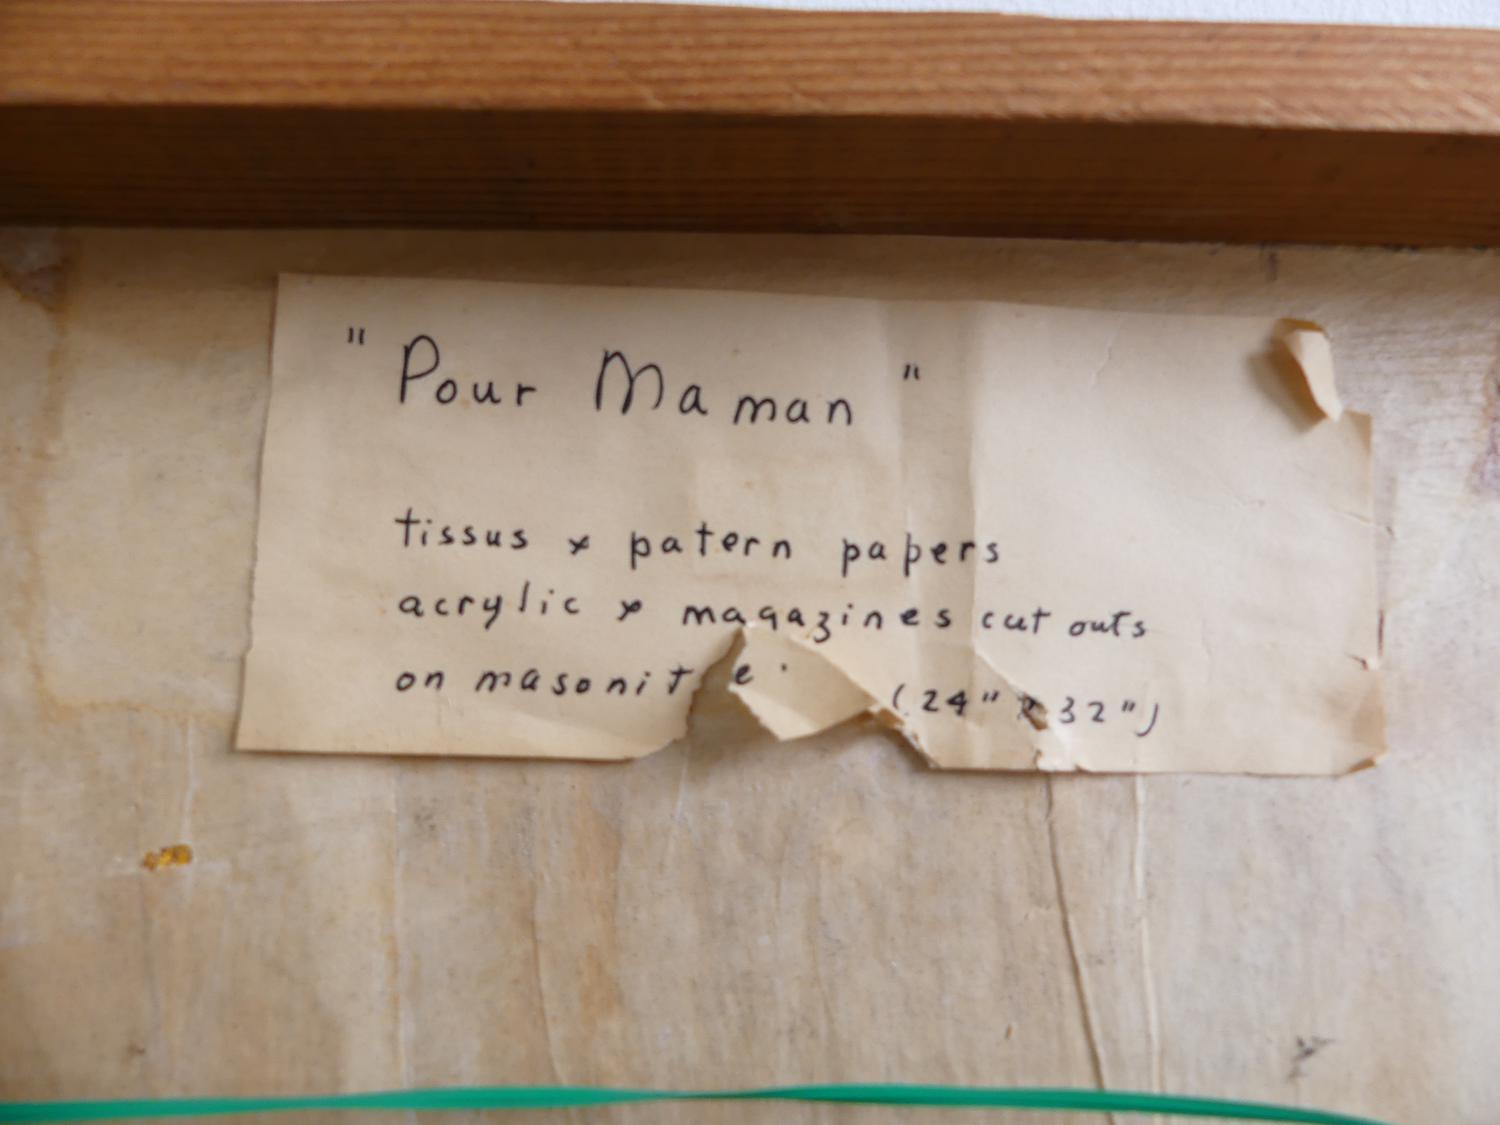 " Pour Maman "
tissus & patern papers
acrylic & magazines cut outs
on masonite.
(24" x 32")